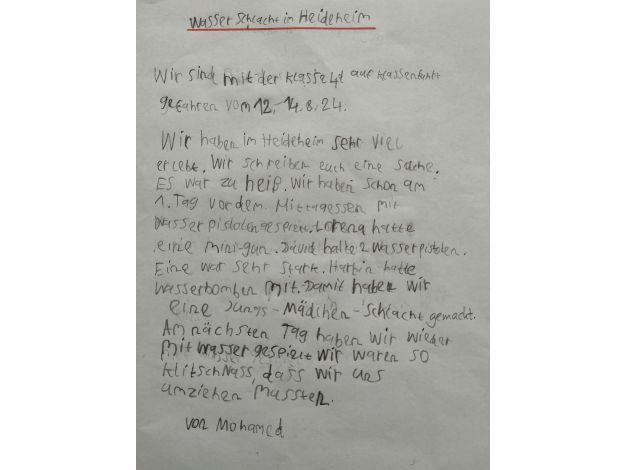 Wasser Schlacht in Heideheim
Wir sind mit der Klasse 4d auf Klassenfahrt
gefahren vom 12.-14.8.24.
Wir haben im Heideheim sehr viel
erlebt. Wir schreiben euch eine sache.
Es war zu heiß. Wir haben schon am
1. Tag vor dem Mittagessen mit
Wasserpistolen gespielt. Lorena hatte
eine mini-gun. David hatte 2 Wasserpistolen.
Eine war sehr stark. Harbin hatte
Wasserbomben mit. Damit haben wir
eine Jungs-Mädchen-Schlacht gemacht.
Am nächsten Tag haben wir wieder
mit wasser gespielt wir waren so
klitschnass, dass wir uns
umziehen mussten.
von Mohamed